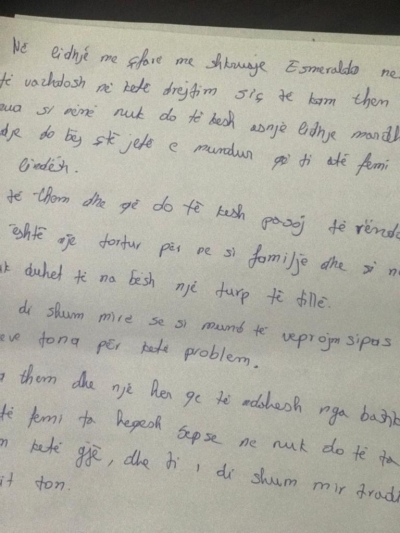 Në lidhje me çfare me shkruaje Esmeralda ne
të vazhdosh në ketë drejtim siç te kam them
ua si nënë nuk do të kesh asnjë lidhje mardh
dje do bëj çtë jetë e mundur që ti atë femi
lindësh.
të them dhe që do të kesh pasoj të rënda
është një tortur për ne si familje dhe si n
uk duhet të na bësh një turp të tillë.
di shum mirë se si mund të veprojm sipas
eve tona për ketë problem.
them dhe një her qe të ndahesh nga bashk
të femi ta heqesh sepse ne nuk do të ta
ketë gjë, dhe ti, di shum mir tradi
it ton.